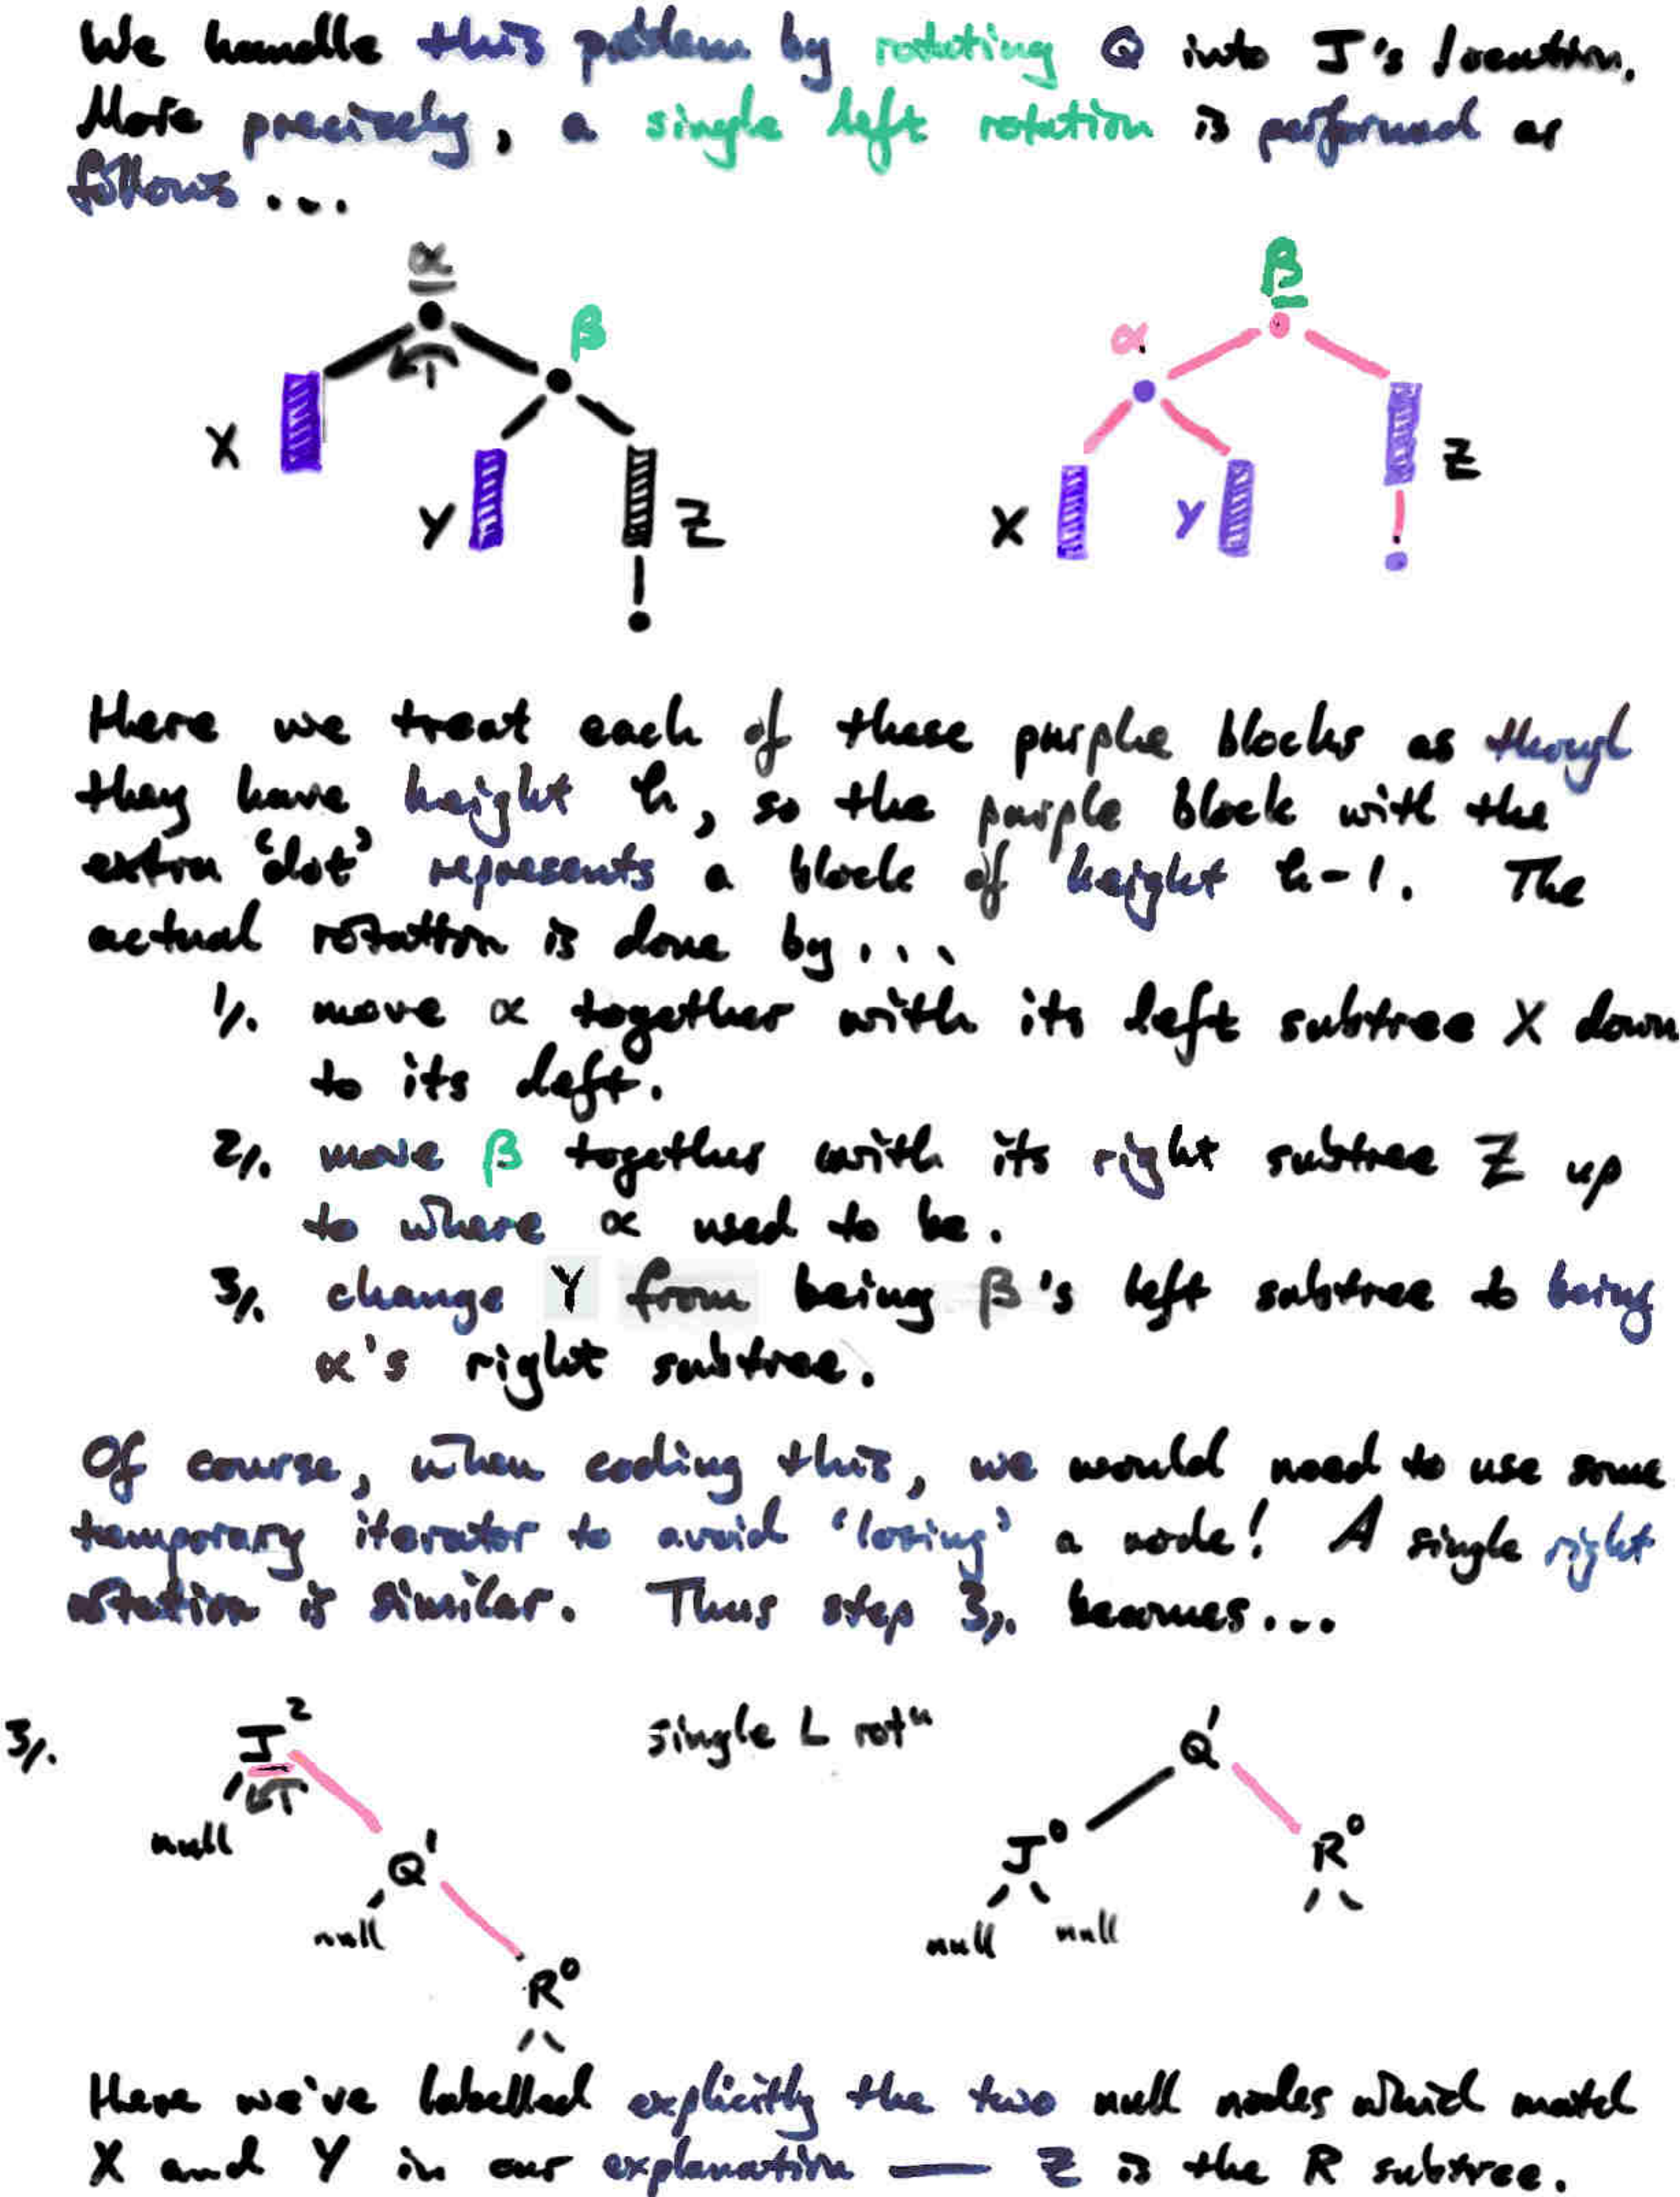 We handle this problem by rotating Q into J's location.
More precisely, a single left rotation is performed as
follows ...
α
β
X
Y
Z
β
α
X
Y
Z
Here we treat each of these purple blocks as though
they have height h, so the purple block with the
extra 'dot' represents a block of height h-1. The
actual rotation is done by...
1/. move α together with its left subtree X down
to its left.
2/. move β together with its right subtree Z up
to where α used to be.
3/. change Y from being β's left subtree to being
α's right subtree.
Of course, when coding this, we would need to use some
temporary iterator to avoid 'losing' a node! A single right
rotation is similar. Thus step 3/. becomes...
3/.
J²
null
Q¹
null
R⁰
single L rotⁿ
Q¹
J⁰
R⁰
null
null
Here we've labelled explicitly the two null nodes which match
X and Y in our explanation — Z is the R subtree.